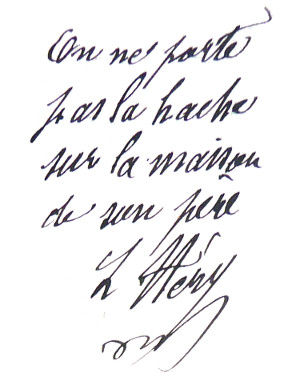 On ne porte
pas la hache
sur la maison
de son père
L Hény